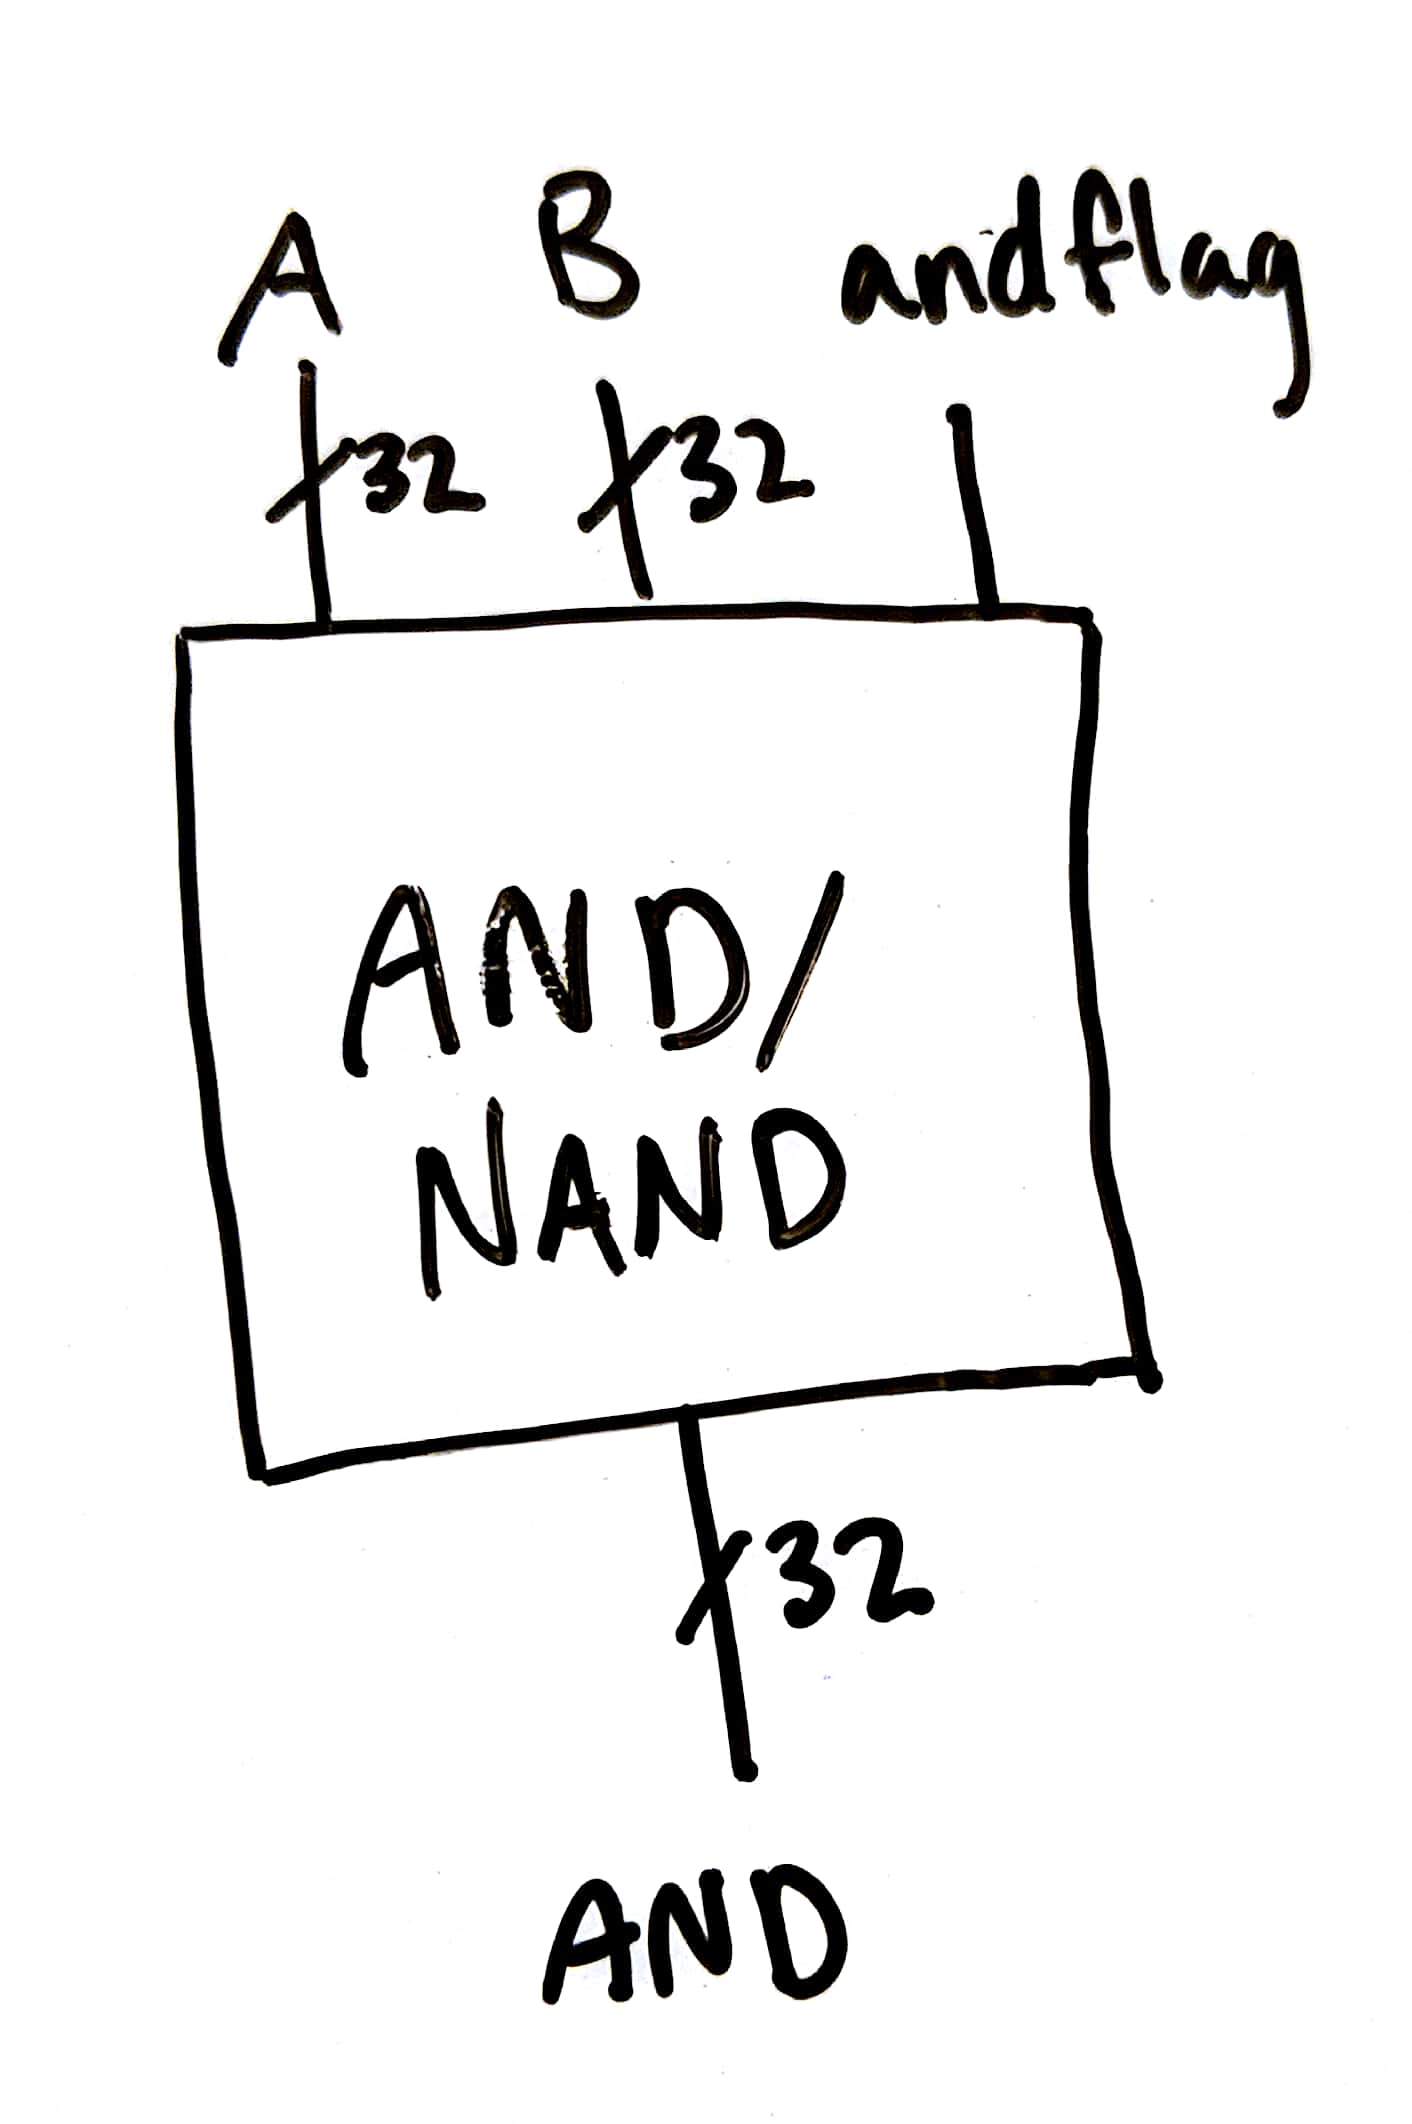 A B andflag
32 32
AND/
NAND
32
AND